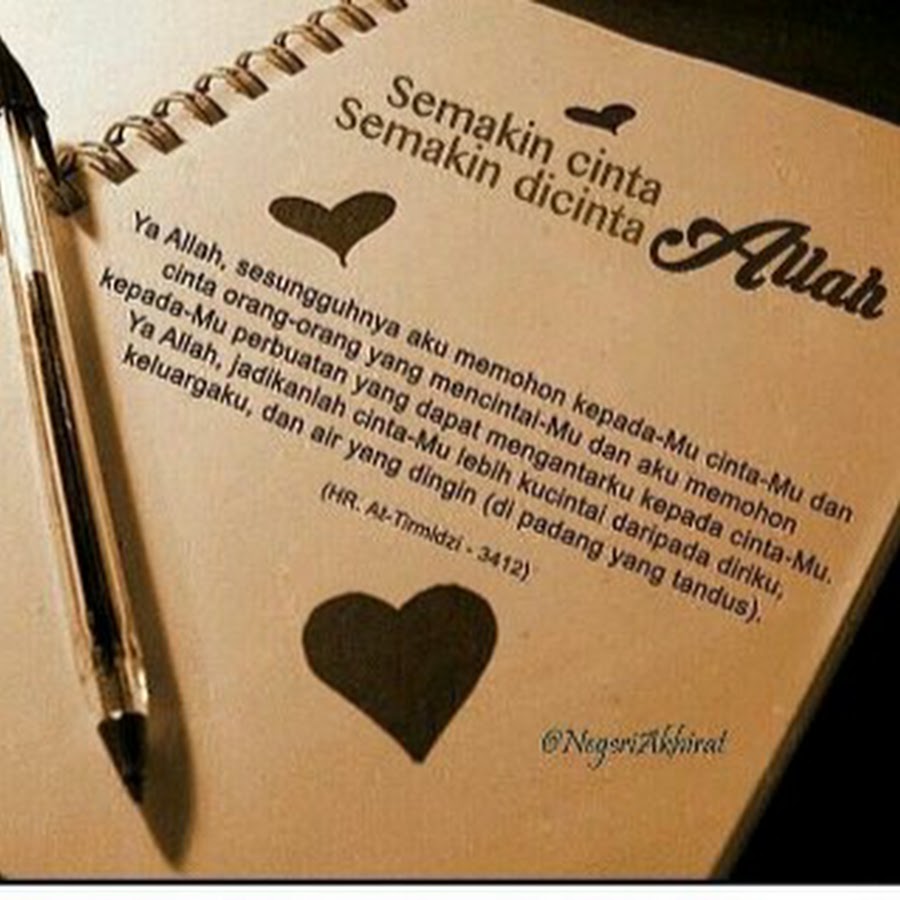 Semakin cinta
Semakin dicinta Allah
Ya Allah, sesungguhnya aku memohon kepada-Mu cinta-Mu dan
cinta orang-orang yang mencintai-Mu dan aku memohon
kepada-Mu perbuatan yang dapat mengantarku kepada cinta-Mu.
Ya Allah, jadikanlah cinta-Mu lebih kucintai daripada diriku,
keluargaku, dan air yang dingin (di padang yang tandus).
(HR. At-Tirmidzi - 3412)
@NegeriAkhirat